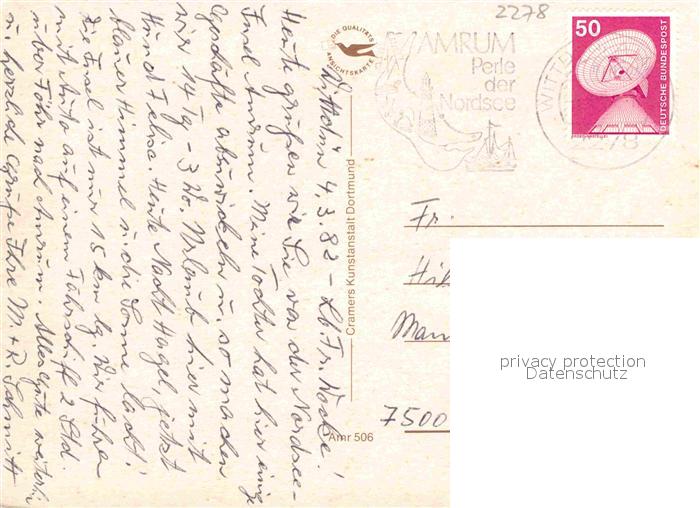 Wittdün 4.3.82 - Lb. Fr. Nocke!
Heute grüßen wir Sie von der Nordsee-
Insel Amrum. Meine Tochter hat hier einige
Geschäfte abzuwickeln u. so machen
wir 14 Tg - 3 Wo. Urlaub hier mit
Hund Felixe. Heute Nacht Hagel, jetzt
blauer Himmel u. die Sonne lacht!
Die Insel ist nur 15 km lg. Wir fuhren
mit Auto auf einem Fährschiff 2 Std.
über Föhr nach Amrum. Alles Gute weiterhin
u. herzliche Grüße Ihre M. + R. Schmitt
DIE QUALITÄTS
ANSICHTSKARTE
Cramers Kunstanstalt Dortmund
Amr 506
2278
AMRUM
Perle
der
Nordsee
WITT
78
50
DEUTSCHE BUNDESPOST
Fr.
Hil
Man
7500
privacy protection
Datenschutz